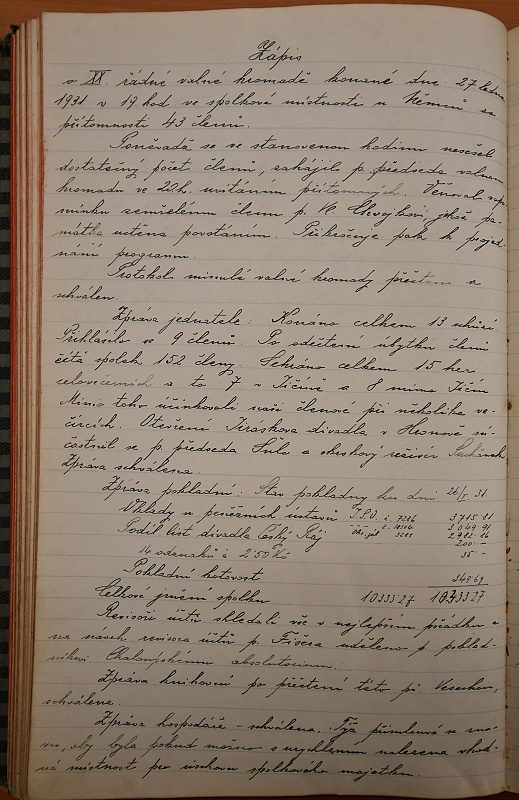 Zápis
o XX. řádné valné hromadě konané dne 27 ledna
1931 v 19 hod ve spolkové místnosti u Němců za
přítomnosti 43 členů.
Poněvadž se ve stanovenou hodinu nesešel
dostatečný počet členů, zahájil p. předseda valnou
hromadu ve 20h. uvítáním přítomných. Věnoval vzpo-
mínku zemřelému členu p. jehož pa-
mátka uctěna povstáním. Přikročuje pak k projed-
nání programu.
Protokol minulé valné hromady přečten a
schválen.
Zpráva jednatele: Konáno celkem 13 schůzí
Přihlásilo se 9 členů. Po odečtení úbytku členů
čítá spolek 152 členy. Sehráno celkem 15 her
celovečerních a to 7 v Jičíně a 8 mimo Jičín
Mimo toho účinkovali naši členové při několika ve-
čírcích. Otevření Jiráskova divadla v Hronově sú-
častnil se p. předseda Šulc a okrskový režisér
Zpráva schválena.
Zpráva pokladní: Stav pokladny ku dni 26/I. 31.
Vklady u peněžních ústavů č. 7236 3715.81
č. 3049.91
2982.86
Podíl. list divadla Český Ráj 200.-
14 odznaků à 2.50 Kč 35.-
Pokladní hotovost 349.69
Celkové jmění spolku 10333.27 10333.27
Revisoři účtů shledali vše v nejlepším pořádku a
na návrh revisora účtů p. Fišera uděleno p. poklad-
níkovi Chaloupskému absolutorium.
Zpráva knihovní po přečtení této př.
schválena.
Zpráva hospodáře - schválena. Týž přimlouvá se zno-
vu, aby byla pokud možno s urychlením nalezena vhod-
ná místnost pro úschovu spolkového majetku.